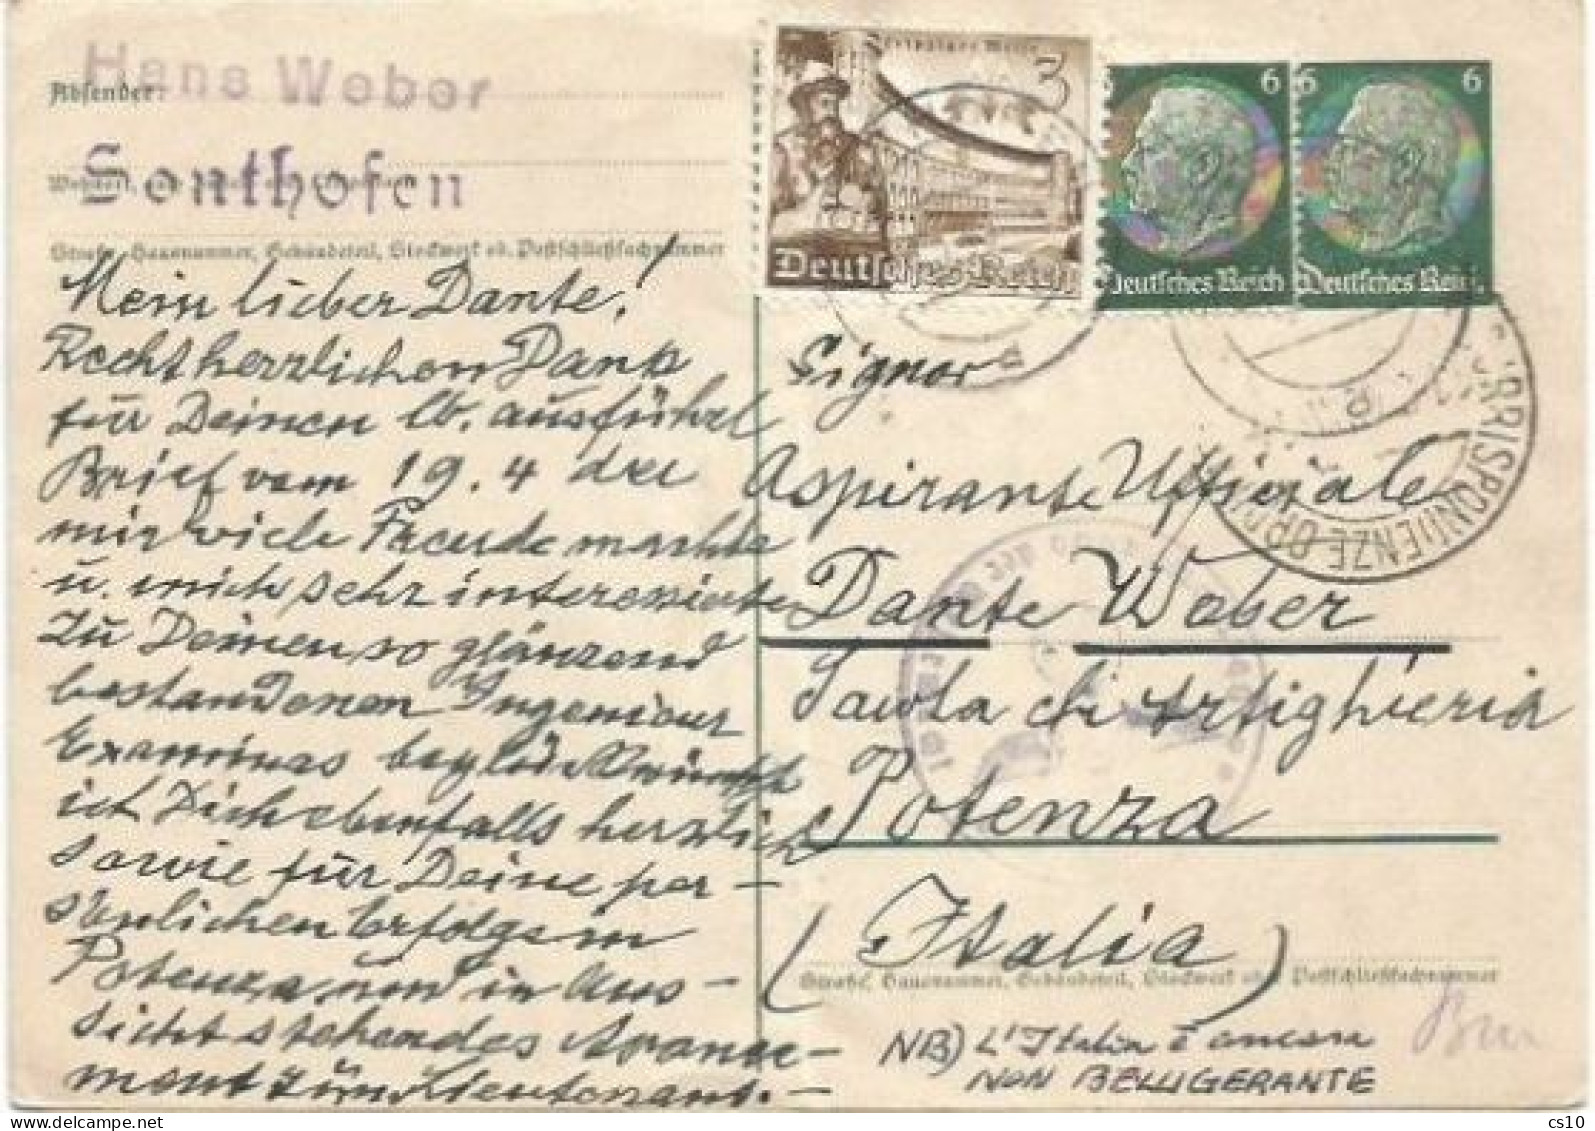 Hans Weber
Absender:
Sonthofen
Straße, Hausnummer, Gebäudeteil, Stockwerk od. Postschließfachnummer
Mein lieber Dante!
Recht herzlichen Dank
für Deinen lb. ausführl
Brief vom 19.4 der
mir viele Freude machte
u. mich sehr interessierte
Zu Deinen so glänzend
bestandenen Ingenieur
Examinas beglückwünsche
ich Dich ebenfalls herzlich
sowie für Deine per-
sönlichen Erfolge in
Potenza und in Aus-
sicht stehendes Avance-
ment zum Lieutenant.-
3
Deutsches Reich
6
Deutsches Reich
6
Deutsches Reich
CORRISPONDENZE
Signor
Aspirante Ufficiale
Dante Weber
Scuola di Artiglieria
Potenza
(Italia)
Straße, Hausnummer, Gebäudeteil, Stockwerk oder Postschließfachnummer
NB) L'Italia è ancora
NON BELLIGERANTE
cs10